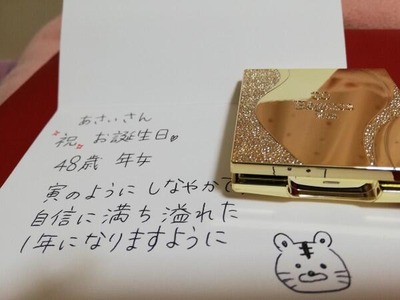 あさいさん
祝 お誕生日
48歳 年女
寅のように しなやかで
自信に満ち溢れた
1年になりますように